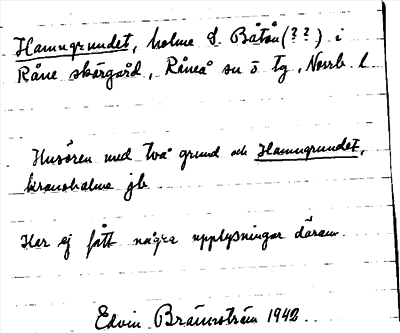 Hamngrundet, holme S. Båtön (??) i
Råne skärgård, Råneå sn o tg, Norrb. l.
Husören med två grund och Hamngrundet,
kronoholme jb
Har ej fått några upplysningar därom
Edvin Brännström 1942